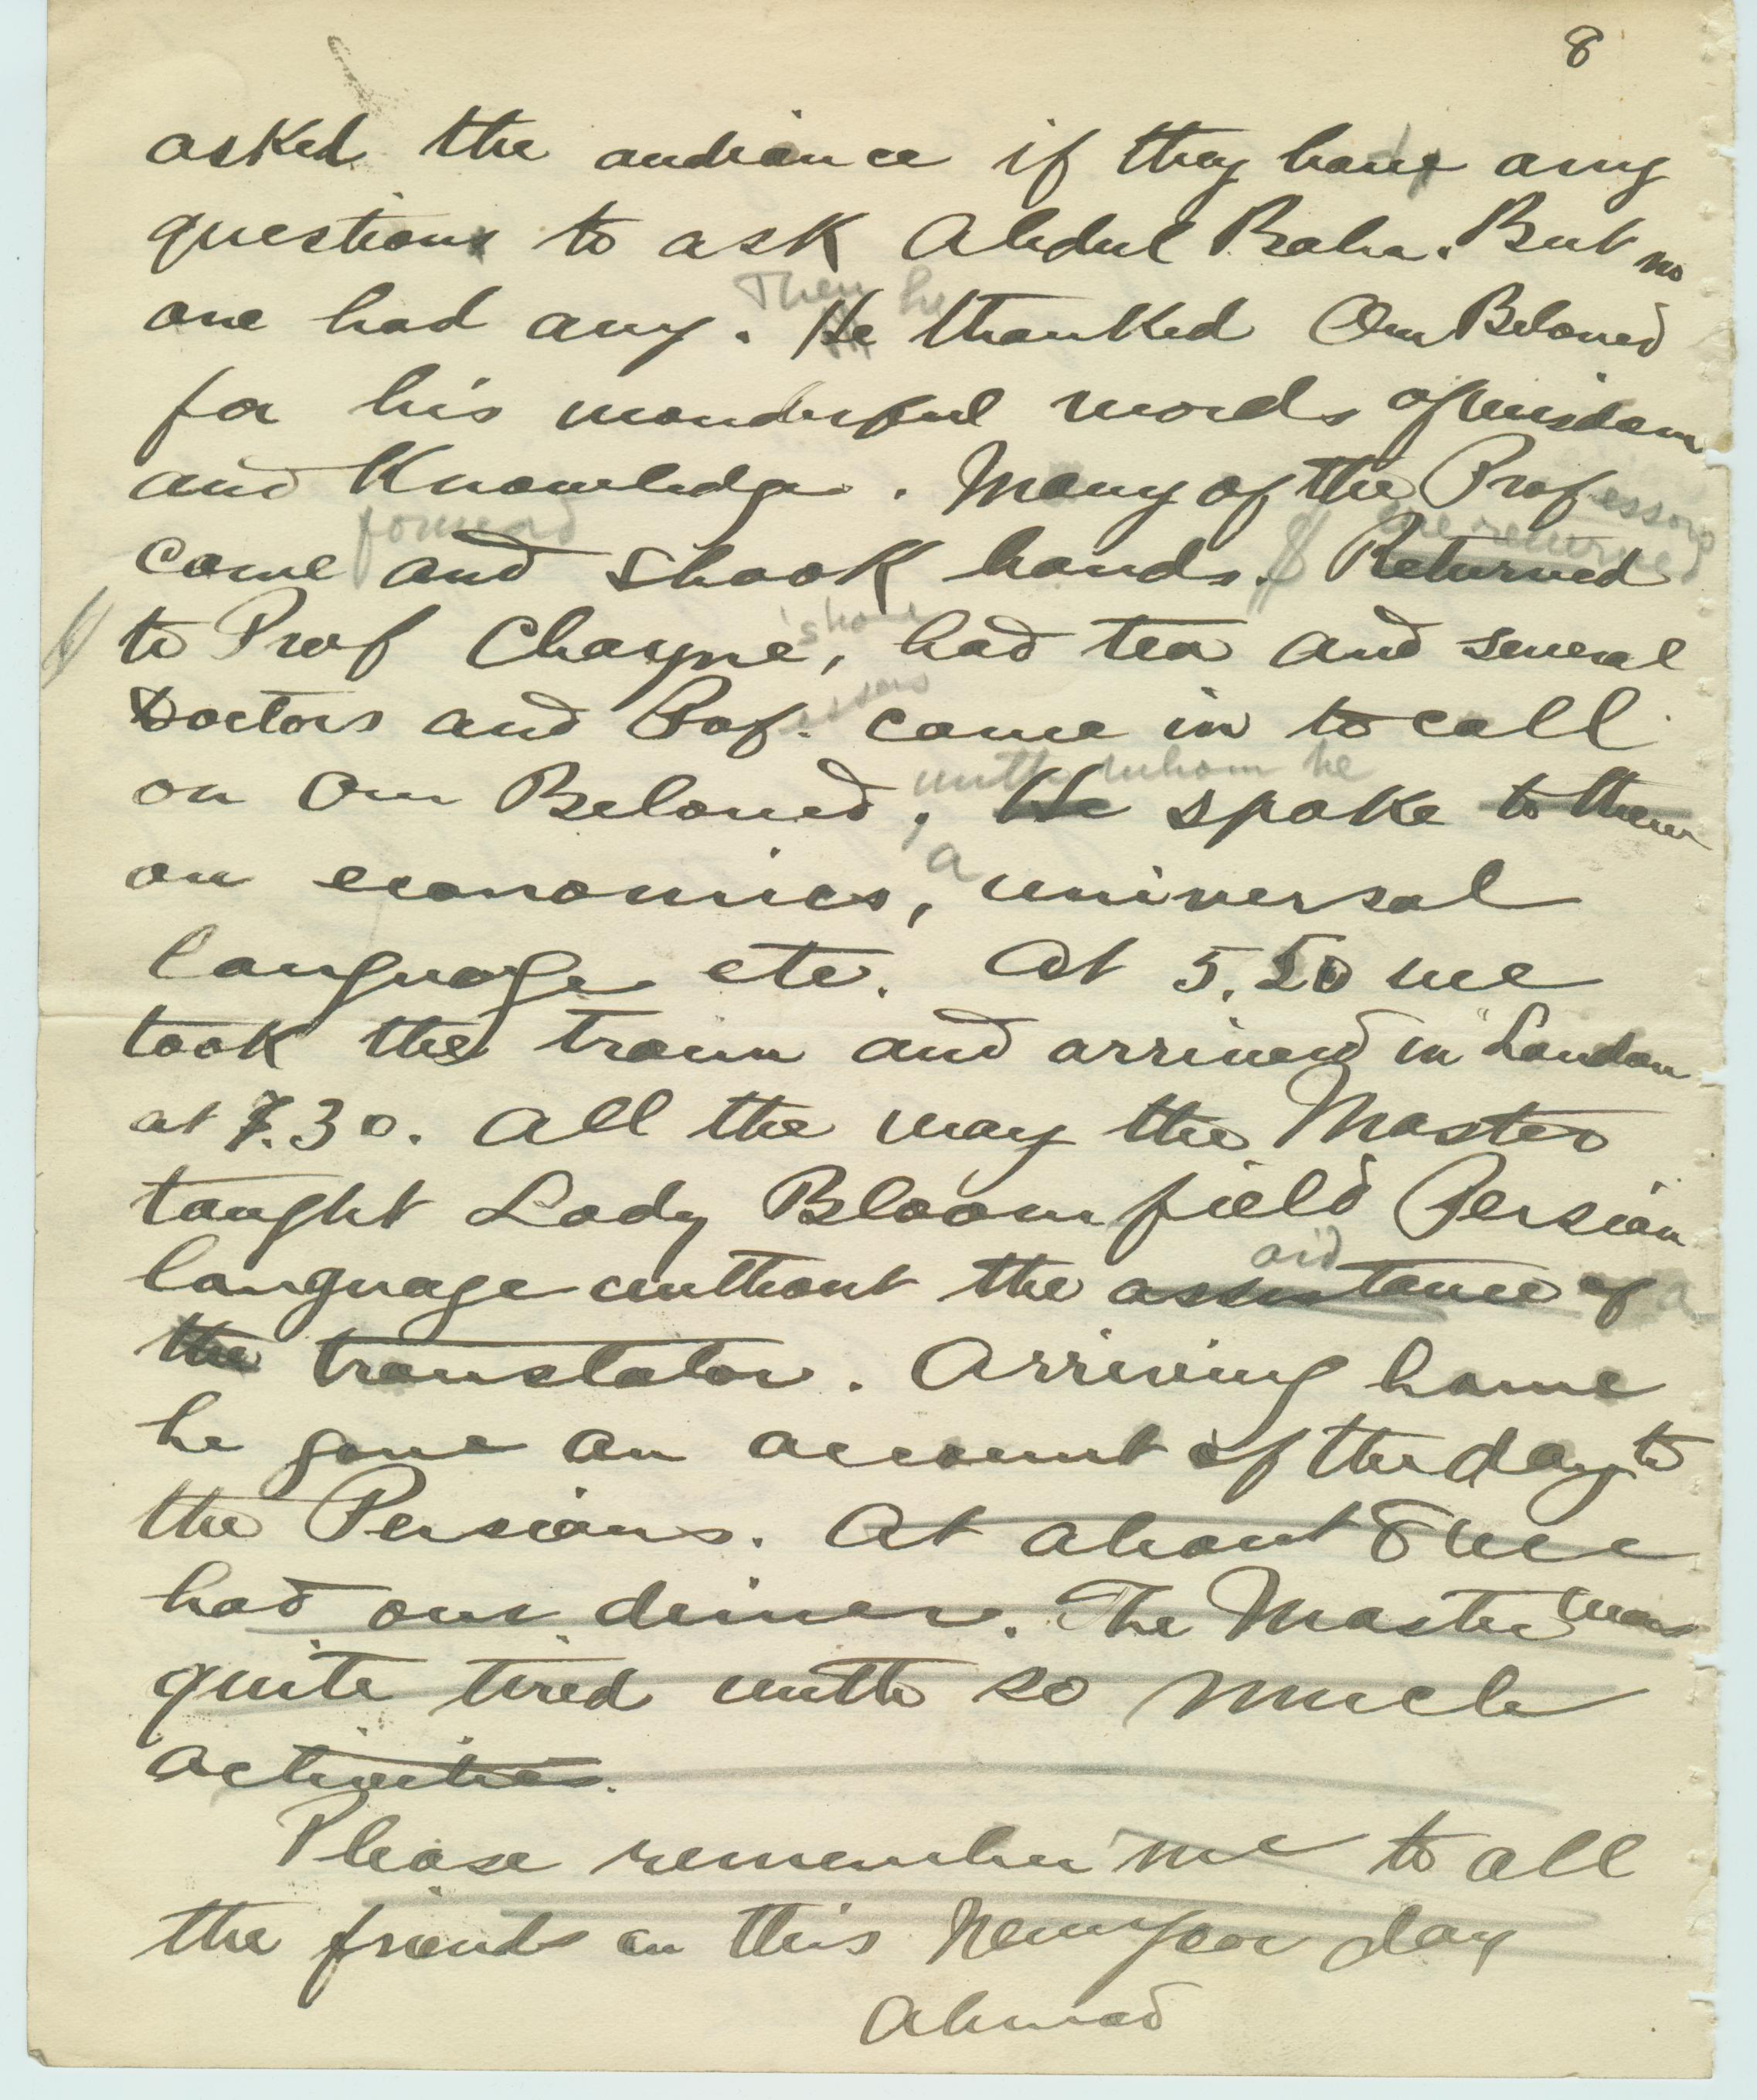 8
asked the audiance if they have any
questions to ask Abdul Baha. But no
Then he
one had any. He thanked Our Beloved
for his wonderful words of wisdom
and Knowledge. Many of the Professors
forward we returned
came and shook hands. Returned
's home
to Prof Chayne, had tea and several
essors
Doctors and Prof. came in to call
with whom he
on Our Beloved, He spoke to them
a
on economics, universal
language etc. At 5.50 we
took the train and arrived in London
at 7.30. All the way the Master
taught Lady Bloomfield Persian
aid
language without the assistance of a
the translator. Arriving home
he gave an account of the day to
the Persians. At about 8 we
had our dinner. The Master was
quite tired with so much
activities.
Please remember me to all
the friends on this New Year day
Ahmad